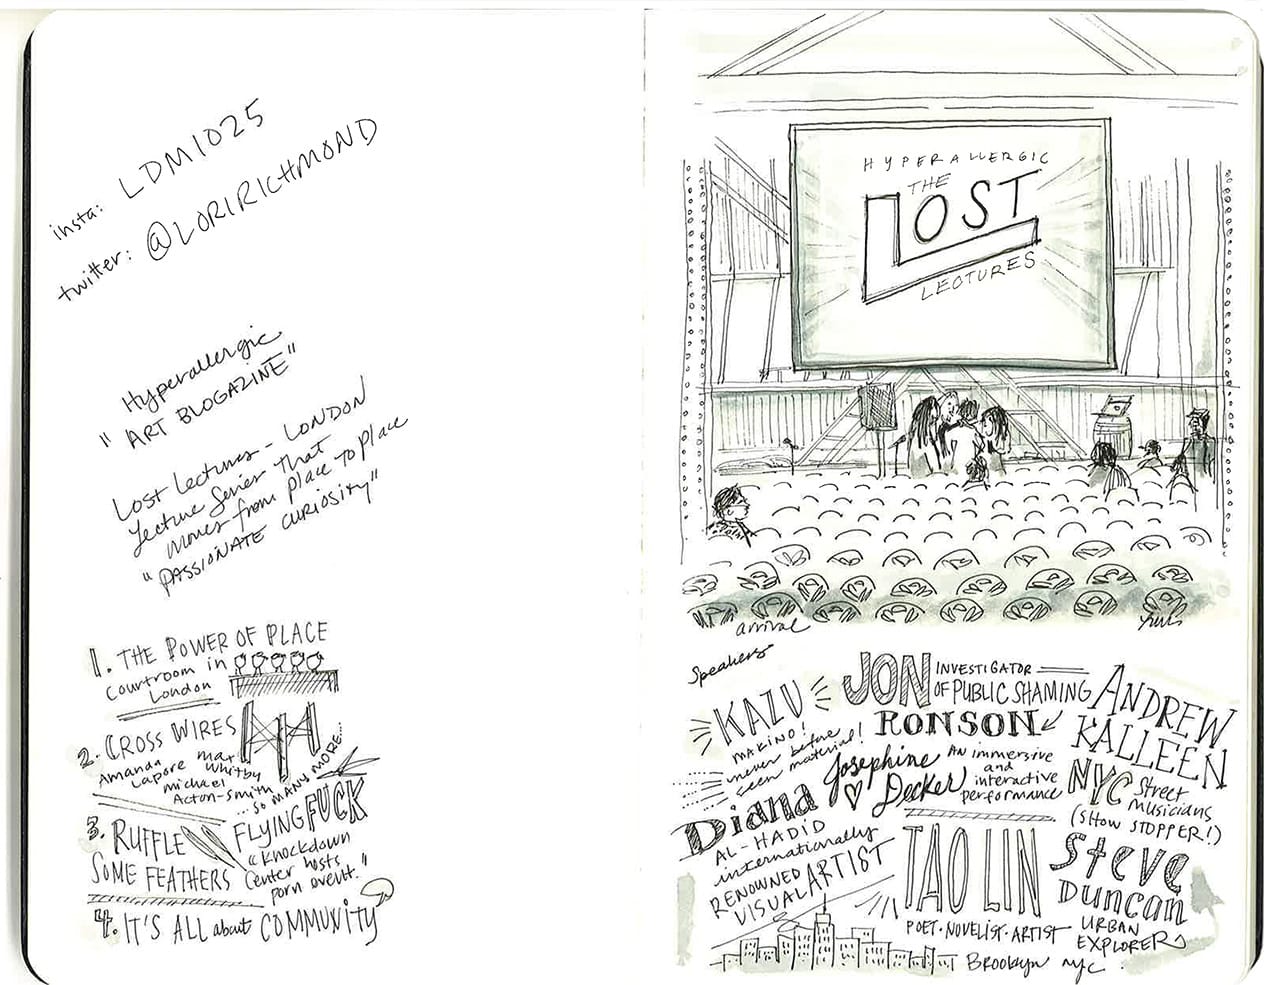 insta: LDM1025
twitter: @LORIRICHMOND
Hyperallergic
"ART BLOGAZINE"
Lost Lectures - LONDON
lecture series that
moves from place to place
"PASSIONATE CURIOSITY"
1. THE POWER OF PLACE
Courtroom in
London
2. CROSS WIRES
Amanda
Lapore
Max
Whitby
Michael
Acton-Smith
...SO MANY MORE...
3. RUFFLE
SOME FEATHERS
FLYING FUCK
"Knockdown
Center hosts
porn event."
4. IT'S ALL about COMMUNITY
HYPERALLERGIC
THE
LOST
LECTURES
arrival
Speakers
KAZU
MAKINO!
never before
seen material!
JON
RONSON
INVESTIGATOR
OF PUBLIC SHAMING
ANDREW
KALLEEN
NYC Street
Musicians
(SHOW STOPPER!)
Josephine
Decker
AN immersive
and
interactive
performance
Diana
AL-HADID
internationally
RENOWNED
VISUAL ARTIST
TAO LIN
POET·NOVELIST·ARTIST
Steve
Duncan
URBAN
EXPLORER
Brooklyn NYC